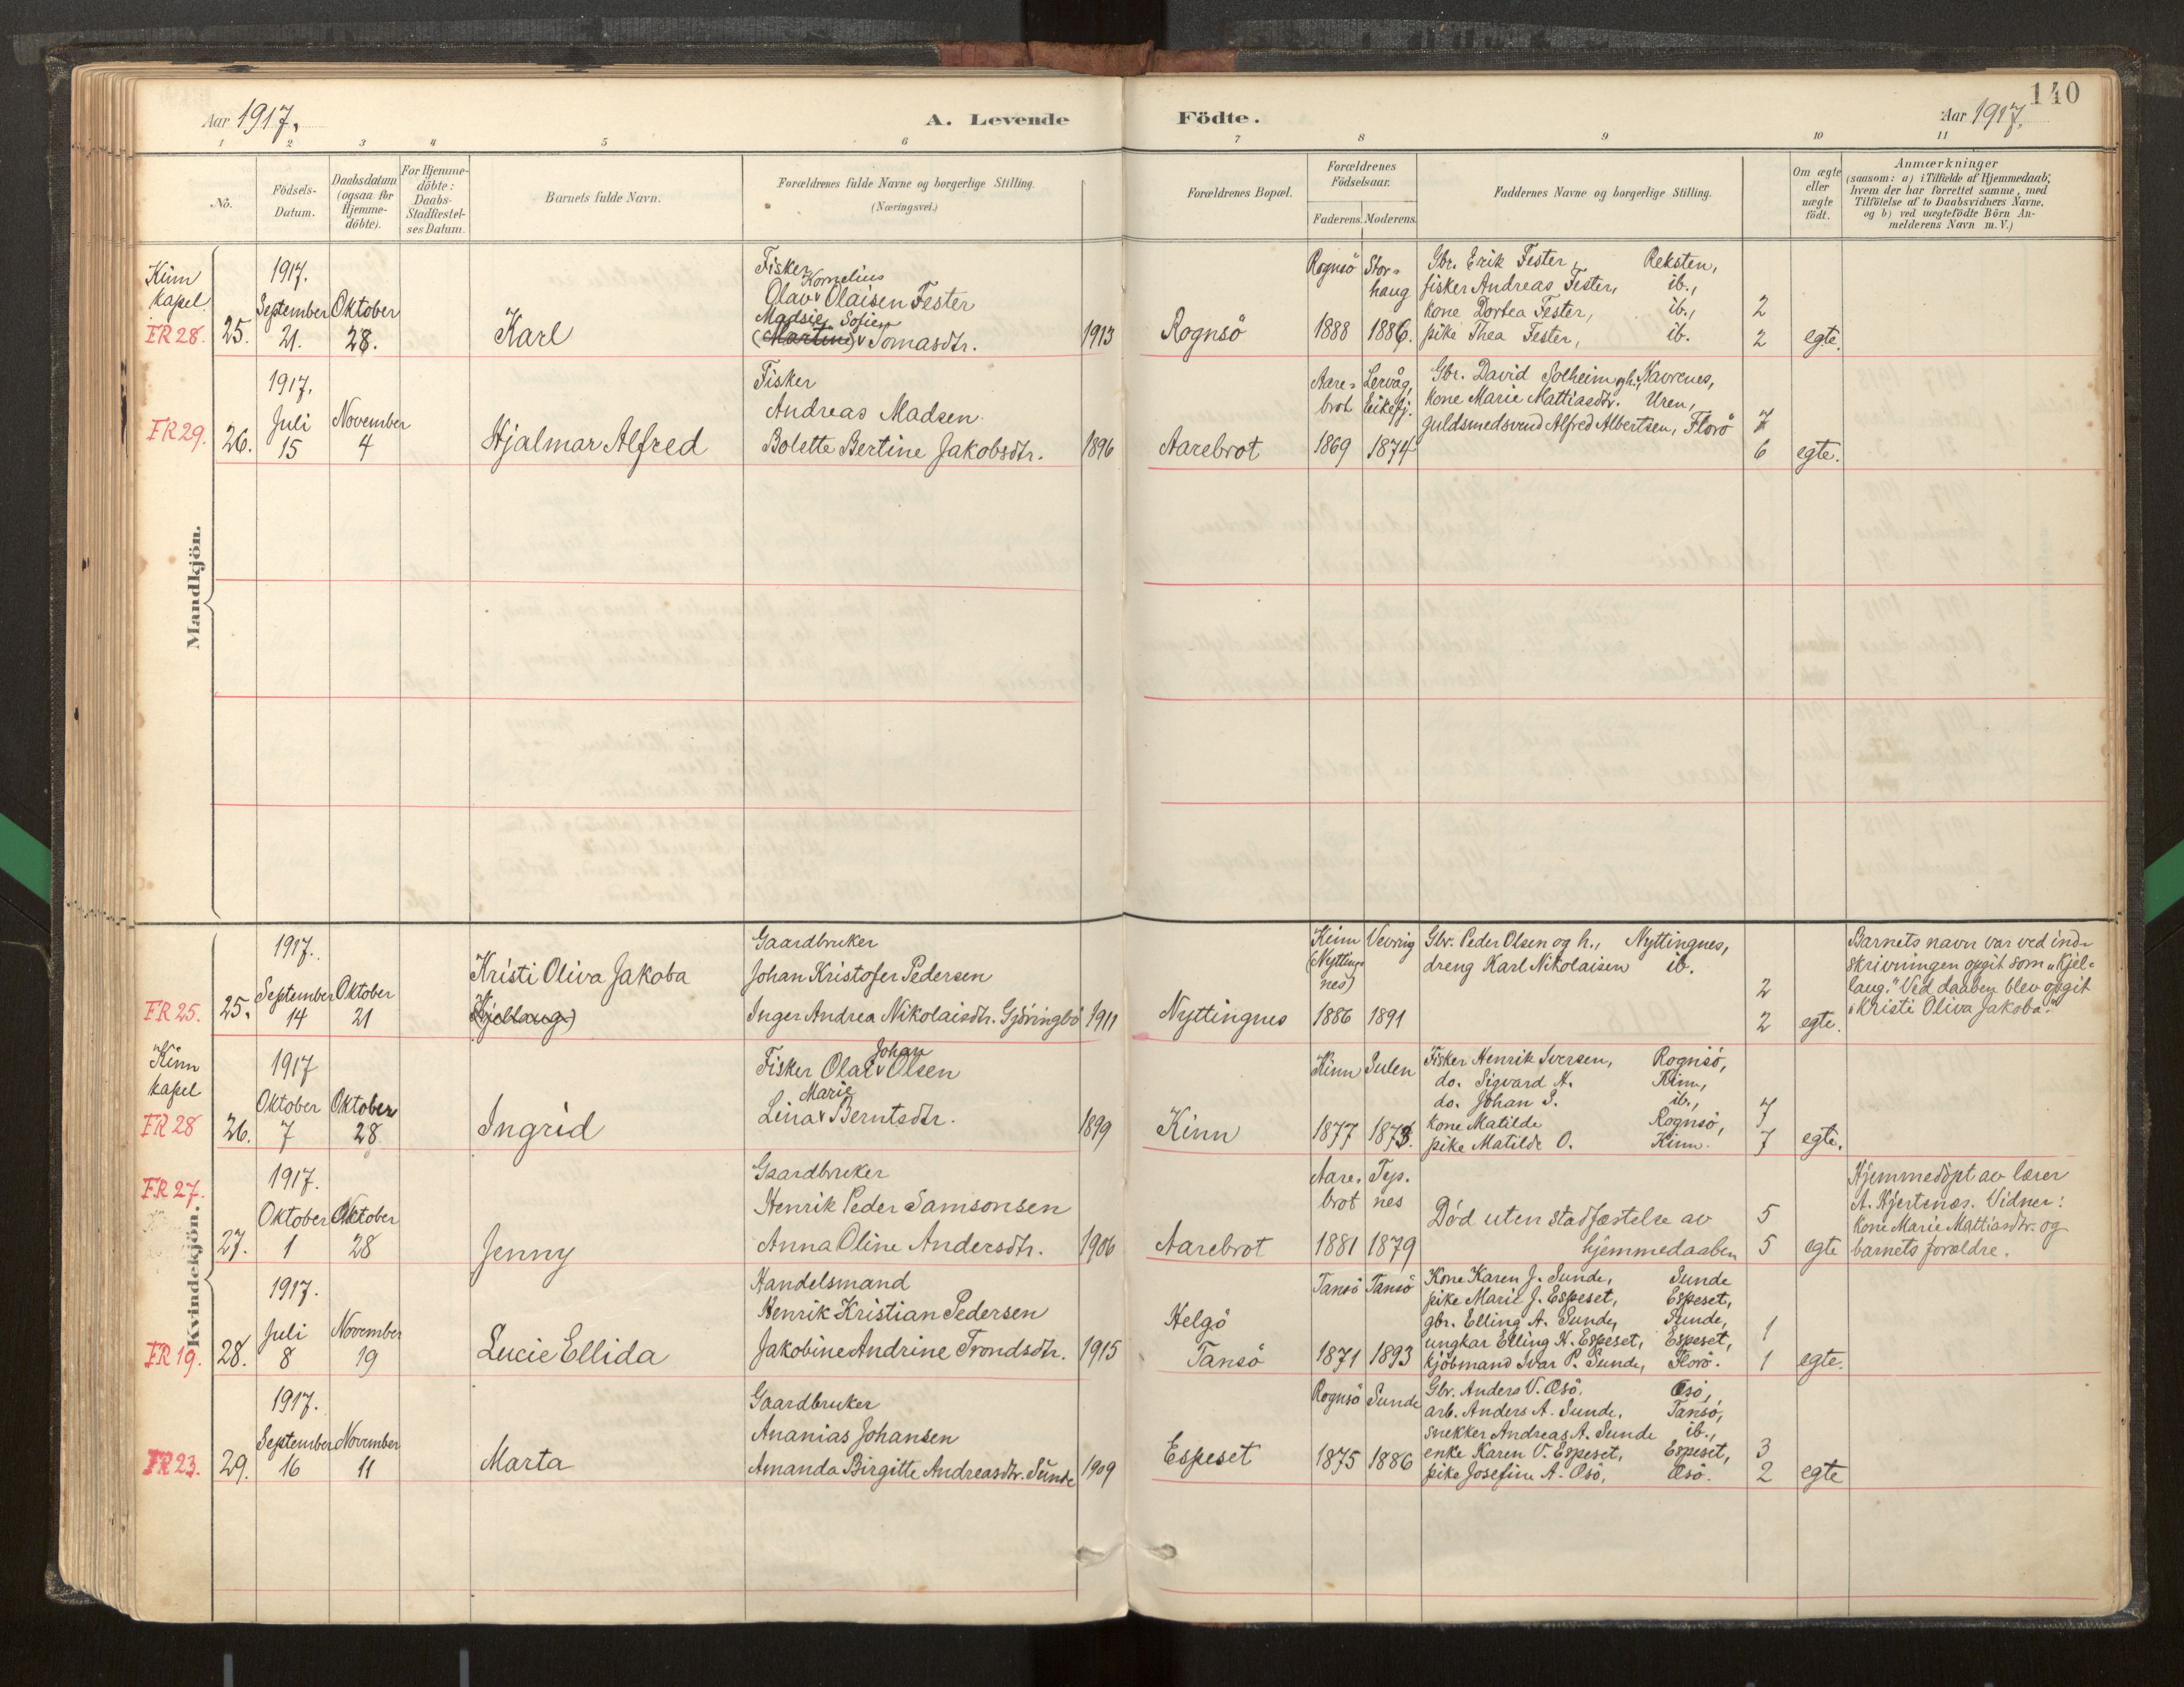 140
Aar 1917.
A. Levende Födte.
Aar 1917.
1 2 3 4 5 6 7 8 9 10 11
No.
Födsels-
Datum.
Daabsdatum
(ogsaa for
Hjemme-
döbte).
For Hjemme-
döbte:
Daabs-
Stadfæstel-
ses Datum.
Barnets fulde Navn.
Forældrenes fulde Navne og borgerlige Stilling.
(Næringsvei.)
Forældrenes Bopæl.
Forældrenes
Födselsaar.
Faderens. Moderens.
Faddernes Navne og borgerlige Stilling.
Om ægte
eller
uægte
födt.
Anmærkninger
(saasom: a) i Tilfælde af Hjemmedaab,
hvem der har forrettet samme, med
Tilföielse af to Daabsvidners Navne,
og b) ved uægtefödte Börn An-
melderens Navn m. V.)
Mandkjön.
Kinn
kapel
FR 28.
25.
1917.
September
21.
Oktober
28.
Karl
Fisker
Kornelius
Olav Olaisen Fester
Madsie Sofie
(Martine) Tomasdtr.
1913
Rognsö
Rognsö
1888
Stor-
haug
1886.
Gbr. Erik Fester, Reksten,
fisker Andreas Fester, ib.,
kone Dortea Fester, ib.,
pike Thea Fester, ib.
2
2
egte.
FR 29.
26.
1917.
Juli
15
November
4
Hjalmar Alfred
Fisker
Andreas Madsen
Bolette Bertine Jakobsdtr.
1896
Aarebrot
Aare-
brot
1869
Lervåg,
Eikefj.
1874
Gbr. David Solheim og h., Navrenes,
kone Marie Mattiasdtr. Uren,
guldsmedsvend Alfred Albertsen, Florö
7
6
egte.
Kvindekjön.
FR 25.
25.
1917.
September
14
Oktober
21
Kristi Oliva Jakoba
(Kjellaug)
Gaardbruker
Johan Kristofer Pedersen
Inger Andrea Nikolaisdtr. Gjöringbö
1911
Nyttingnes
Kinn
(Nytting-
nes)
1886
Vevring
1891
Gbr. Peder Olsen og h., Nyttingnes,
dreng Karl Nikolaisen ib.
2
2
egte.
Barnets navn var ved ind-
skrivningen opgit som „Kjel-
laug." Ved daaben blev opgit
„Kristi Oliva Jakoba."
Kinn
kapel
FR 28
26.
1917
Oktober
7
Oktober
28
Ingrid
Johan
Fisker Olai Olsen
Marie
Lina Berntsdtr.
1899
Kinn
Kinn
1877
Sulen
1873.
Fisker Henrik Iversen, Rognsö,
do. Sigvard H. Kinn,
do. Johan S. ib.,
kone Matilde Rognsö,
pike Matilde O. Kinn.
7
7
egte.
FR 27.
27.
1917.
Oktober
1
Oktober
28
Jenny
Gaardbruker
Henrik Peder Samsonsen
Anna Oline Andersdtr.
1906
Aarebrot
Aare-
brot
1881
Teps-
nes
1879
Död uten stadfæstelse av
hjemmedaaben
5
5
egte
Hjemmedöpt av lærer
A. Hjertenæs. Vidner:
Kone Marie Mattiasdtr. og
barnets forældre.
FR 19.
28.
1917.
Juli
8
November
19
Lucie Ellida
Handelsmand
Henrik Kristian Pedersen
Jakobine Andrine Trondsdtr.
1915
Helgö
Tansö
Tansö
1871
Tansö
1893
Kone Karen J. Sunde, Sunde
pike Marie J. Espeset, Espeset,
gbr. Elling A. Sunde, Sunde,
ungkar Elling H. Espeset, Espeset,
kjöbmand Ivar P. Sunde, Florö.
1
1
egte.
FR 23.
29.
1917.
September
16
November
11
Marta
Gaardbruker
Ananias Johansen
Amanda Birgitte Andreasdtr. Sunde
1909
Espeset
Rognsö
1875
Sunde
1886
Gbr. Anders V. Osö, Osö,
arb. Anders A. Sunde, Tansö,
snekker Andreas A. Sunde ib.,
enke Karen V. Espeset, Espeset,
pike Josefine A. Osö, Osö.
3
2
egte